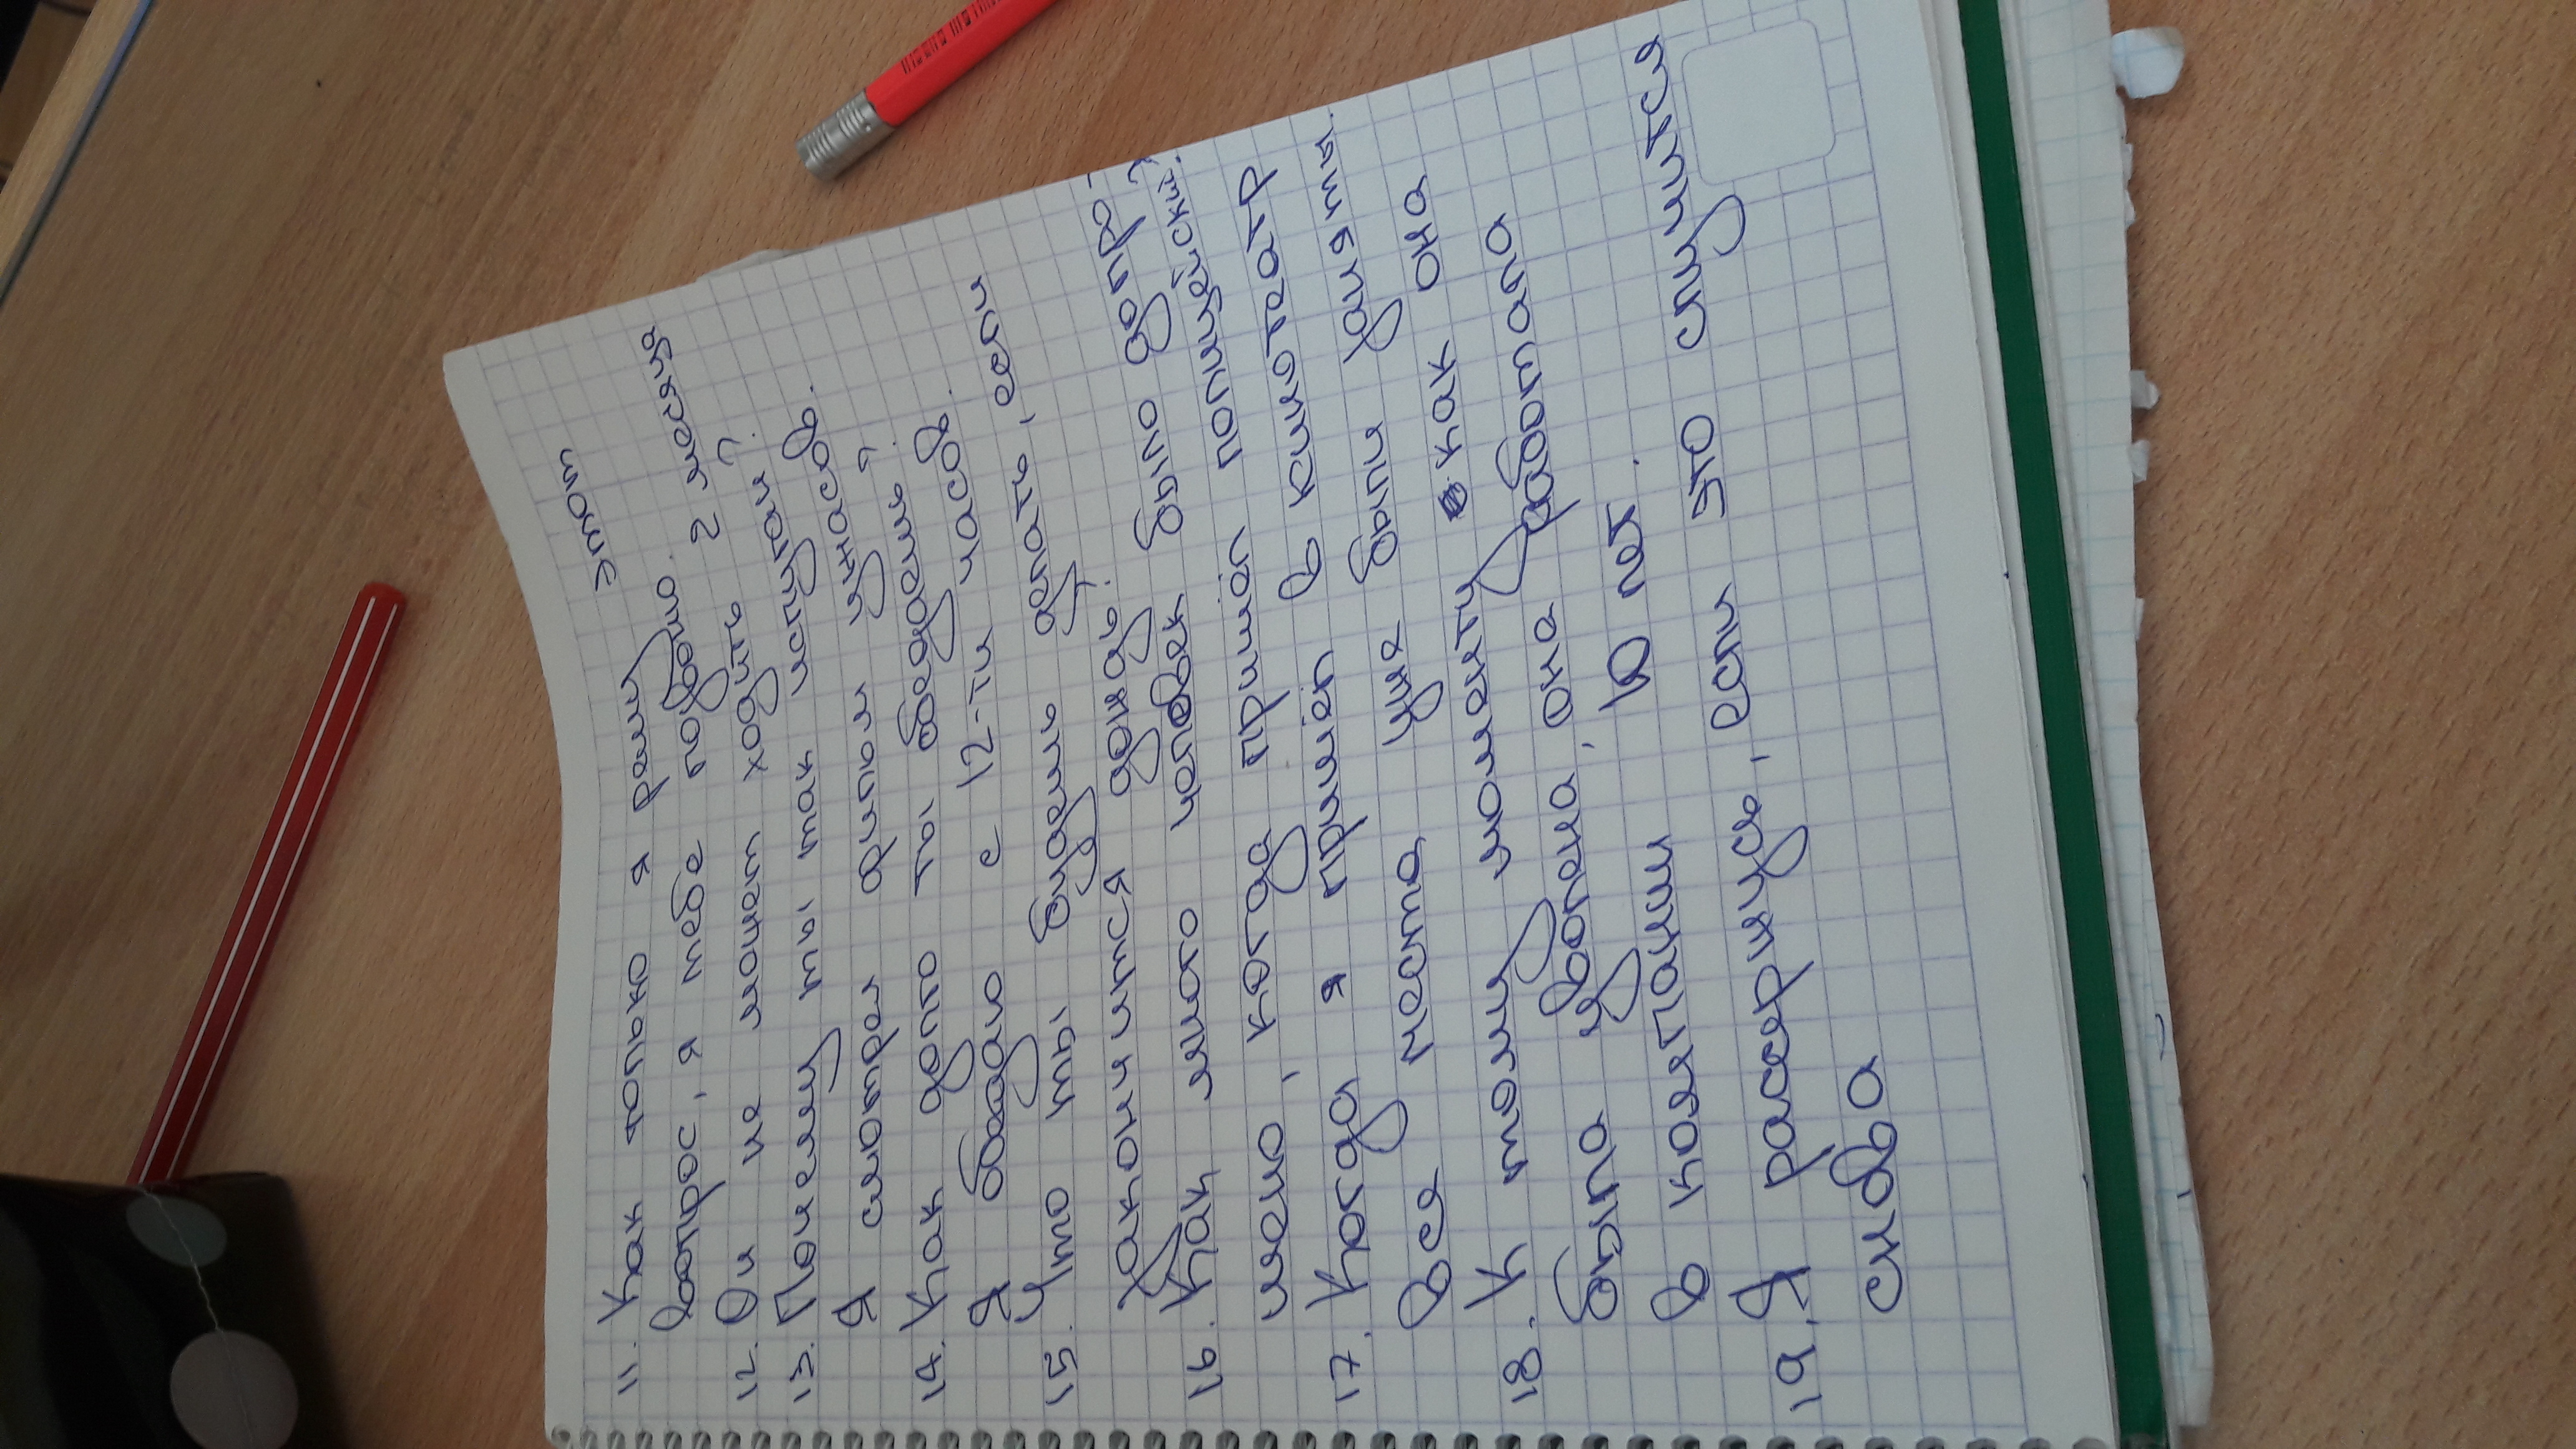 этот
11. Как только я решу
вопрос, я тебе позвоню.
12. Он не может ходить 2 месяца
13. Почему ты так испуган?
Я смотрел фильм ужасов.
14. Как долго ты бегаешь?
Я бегаю с 12-ти часов.
15. Что ты будешь делать, если
закончится дождь?
16. Как много человек было допро-
шено, когда пришёл полицейский?
17. Когда я пришёл в кинотеатр
все места уже были заняты.
18. К тому моменту как она
была уволена, она работала
в компании 10 лет.
19. Я рассержусь, если это случится
снова